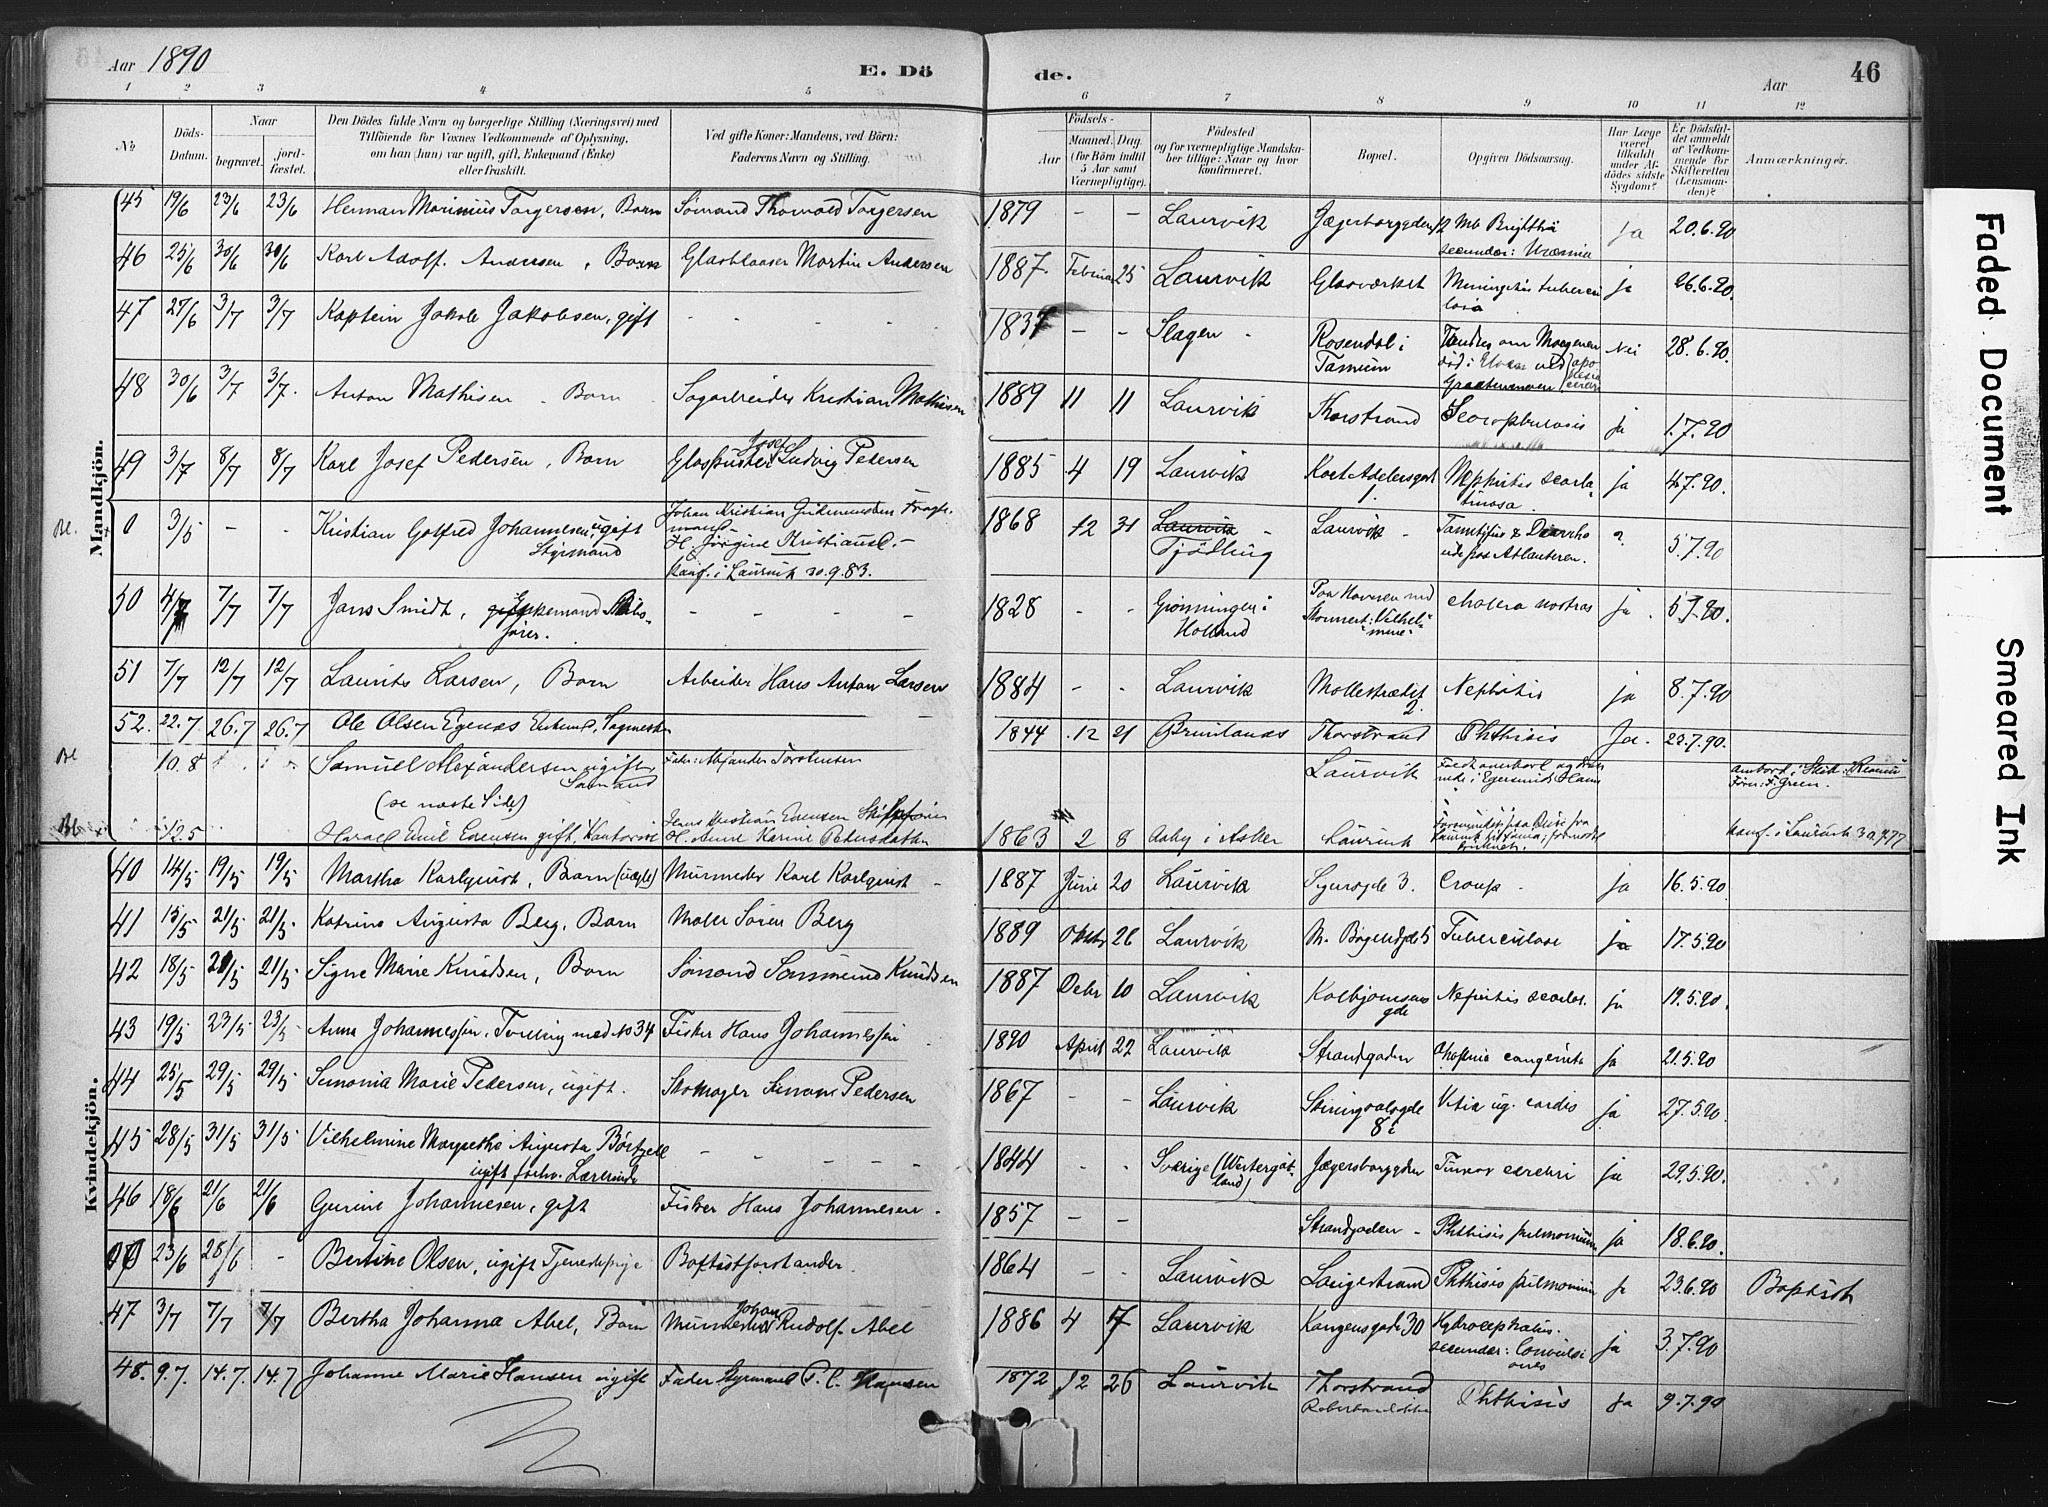 Aar 1890
E. Dö
de.
Aar
46
1 2 3 4 5 6 7 8 9 10 11 12
№
Döds-Datum.
Naar
begravet.
jord-fæstet.
Den Dödes fulde Navn og borgerlige Stilling (Næringsvei) med
Tilföiende for Voxnes Vedkommende af Oplysning,
om han (hun) var ugift, gift, Enkemand (Enke)
eller fraskilt.
Ved gifte Koner: Mandens, ved Börn:
Faderens Navn og Stilling.
Födsels-
Aar
Maaned. Dag.
(for Börn indtil
5 Aar samt
Værnepligtige).
Födested
og for værnepligtige Mandska-
ber tillige: Naar og hvor
konfirmeret.
Bopæl.
Opgiven Dödsaarsag.
Har Læge
været
tilkaldt
under Af-
dödes sidste
Sygdom?
Er Dödsfal-
det anmeldt
af Vedkom-
mende for
Skifteretten
(Lensman-
den)?
Anmærkninger.
Mandkjön.
45 19/6 23/6 23/6 Herman Marinius Torgersen, Barn Sömand Thorvald Torgersen 1879 - - Laurvik Jægerborggden 12 Mb Brightii ja 20.6.90
secundær: Uræmia
46 25/6 30/6 30/6 Karl Adolf Andersen, Barn Glasblaaser Martin Andersen 1887 Februar 25 Laurvik Glasværket Meningitis tubercu ja 26.6.90.
losa
47 27/6 3/7 3/7 Kaptein Jakob Jakobsen, gift - - - - 1837 - - Slagen - Rosendal i Nei 28.6.90.
Tanum
48 30/6 3/7 3/7. Anton Mathisen - Barn Sagarbeider Kristian Mathisen 1889 11 11 Laurvik Karstrand Scrophulosis ja 1.7.90
49 3/7 8/7 8/7 Karl Josef Pedersen, Barn Glaspuster Josef Ludvig Pedersen 1885 4 19 Laurvik Kort Adelersgd Nephritis scarla- ja 4.7.90.
1.
tinosa.
Bl. 0 3/5 - - Kristian Gotfred Johannesen, ugift
Styrmand
Johan Kristian
H. Jörgine Kristiansd. -
Konf. i Laurvik 30.9.83.
1868 12 31 Laurvik - Laurvik - ? 5.7.90
Tjödling
Atlanteren.
50 4/7 7/7 7/7 Jans Smidt, gift Enkemand Skibs-
förer.
- - - 1828 - - Grönningen i Paa Havnen ved cholera nostras ja. 5.7.90.
Holland Skonnert: Vilhel-
mine
51 7/7 12/7 12/7 Laurits Larsen, Barn Arbeider Hans Anton Larsen 1884 - - Laurvik Mollestrædet Nephritis ja 8.7.90
2.
52. 22.7 26.7 26.7 Ole Olsen Egenæs Enkemd, Sagmester - 1844 12 21 Brunlanæs Thorstrand Phthisis Ja. 22.7.90.
Bl 10.8 Samuel Alexandersen ugift Fader: Alexander Torstensen Laurvik
Sømand
(se næste Side)
Förer: F. Green.
Bl. 12.5 Harald Emil Evensen gift, Kontorist Hans Kristian Evensen Skibsförer
H. Anne Karine Petersdatter
1863 2 8 Asker Laurvik
konf. i Laurvik 30.9.77
Kvindekjön.
40 14/5 19/5 19/5 Martha Karlquist, Barn (uægte) Murmester Karl Karlquist - 1887 Juni 20 Laurvik Sigurdsgde 3. Croup - ja 16.5.90.
41 15/5 21/5 21/5. Katrine Augusta Berg, Barn Maler Sören Berg 1889 Oktbr 26 Laurvik N. Bögegde 5 Tuberculose ja 17.5.90
42 18/5 21/5 21/5 Signe Marie Knudsen, Barn Sömand Knudsen 1887 Debr 10 Laurvik Kolbjörnsens Nefritis scarlat. ja 19.5.90.
gde
43 19/5 23/5 23/5 Anna Johannessen, Tvilling med No 34 Fisker Hans Johannessen 1890 April 22 Laurvik Strandgaden congenita ja 21.5.90
44 25/5 29/5 29/5 Simonia Marie Pedersen, ugift. Skomager Simon Pedersen 1867 - - Laurvik Steringsalsgde Vitia org. cordis ja 27.5.90
8
45 28/5 31/5 31/5 Vilhelmine Margrethe Augusta Börtzell - - - - 1844 - - Sverige (Westergöt- Jægersborggden Tumor cerebri ja 29.5.90.
land)
ugift, forhv. Lærerinde
46 18/6 21/6 21/6 Gurine Johannesen, gift Fisker Hans Johannesen. 1857 - - Strandgaden - Phthisis pulmonum ja 18.6.90.
23/6 28/6 - Bertine Olsen, ugift Tjenestepige Baptistforstander. 1864 - - Laurvik Langestrand Phthisis pulmonum ja 23.6.90 Baptist
47 3/7 7/7 7/7 Bertha Johanna Abel, Barn Murmester Johan Rudolf Abel 1886 4 7 Laurvik Kongensgade 30 Hydrocephalus. ja 3.7.90
secundær: Convulsi
ones
48. 9.7. 14.7. 14.7 Johanne Marie Hansen ugift Fader Styrmand P. C. Hansen 1872 12 26 Laurvik Thorstrand Phthisis ja 9.7.90
Faded Document
Smeared Ink